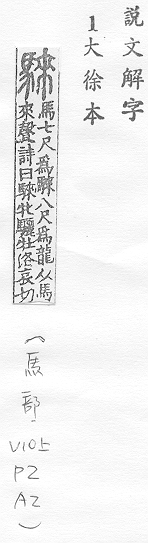 說文解字
1大徐本
騋 馬七尺為騋八尺為龍从馬
來聲詩曰騋牝驪牡洛哀切
(馬部.
V105
P2
A2)